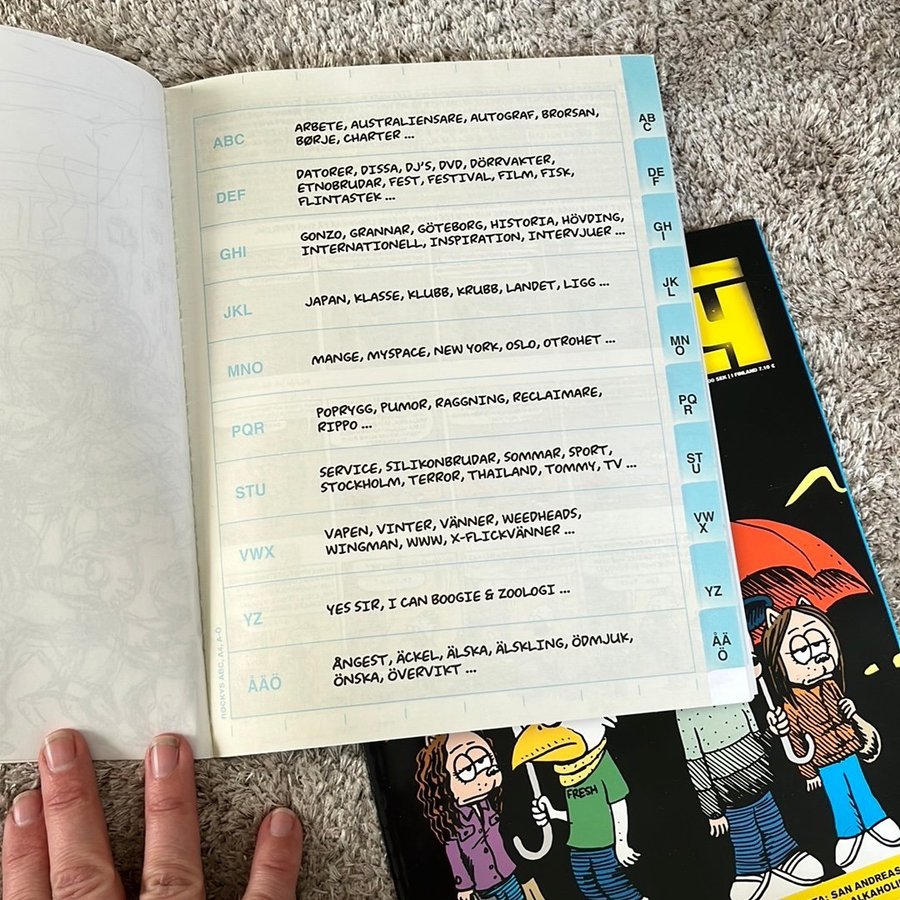 ABC
ARBETE, AUSTRALIENSARE, AUTOGRAF, BRORSAN,
BØRJE, CHARTER ...
DEF
DATORER, DISSA, DJ'S, DVD, DÖRRVAKTER,
ETNOBRUDAR, FEST, FESTIVAL, FILM, FISK,
FLINTASTEK ...
GHI
GONZO, GRANNAR, GÖTEBORG, HISTORIA, HÖVDING,
INTERNATIONELL, INSPIRATION, INTERVJUER ...
JKL
JAPAN, KLASSE, KLUBB, KRUBB, LANDET, LIGG ...
MNO
MANGE, MYSPACE, NEW YORK, OSLO, OTROHET ...
PQR
POPRYGG, PUMOR, RAGGNING, RECLAIMARE,
RIPPO ...
STU
SERVICE, SILIKONBRUDAR, SOMMAR, SPORT,
STOCKHOLM, TERROR, THAILAND, TOMMY, TV ...
VWX
VAPEN, VINTER, VÄNNER, WEEDHEADS,
WINGMAN, WWW, X-FLICKVÄNNER ...
YZ
YES SIR, I CAN BOOGIE & ZOOLOGI ...
ÅÄÖ
ÅNGEST, ÄCKEL, ÄLSKA, ÄLSKLING, ÖDMJUK,
ÖNSKA, ÖVERVIKT ...
ROCKYS ABC, A4, A-Ö
AB
C
DE
F
GH
I
JK
L
MN
O
PQ
R
ST
U
VW
X
YZ
ÅÄ
Ö
Y
SEK | I FINLAND 7.10 €
FRESH
SAN ANDREAS